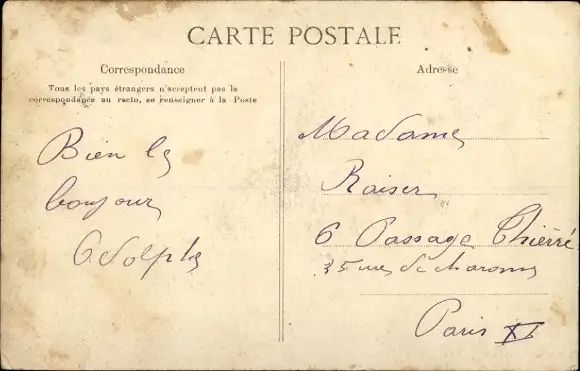 CARTE POSTALE
Correspondance
Tous les pays étrangers n'acceptent pas la
correspondance au recto, se renseigner à la Poste
Bien le
bonjour
Adolphe
Adresse
Madame
Kaiser
6 Passage Thierré
35 rue de charonne
Paris XI